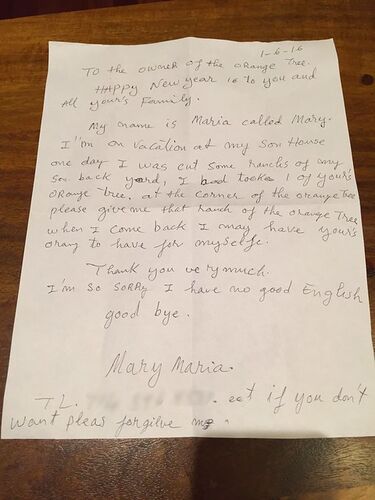 1-6-16
To the owner of the orange Tree.
Happy New year 16 to you and
All your's Family.
My name is Maria called Mary.
I'm on vacation at my Son House
one day I was cut some ranchs of my
Son back yard, I had tooke 1 of your's
orange tree, at the corner of the orange Tree
please give me that ranch of the orange Tree
when I come back I may have your's
orang to have for myselfe.
Thank you verymuch.
I'm so sorry I have no good English
good bye.
Mary Maria.
TL. eet if you don't
want pleas forgilve me